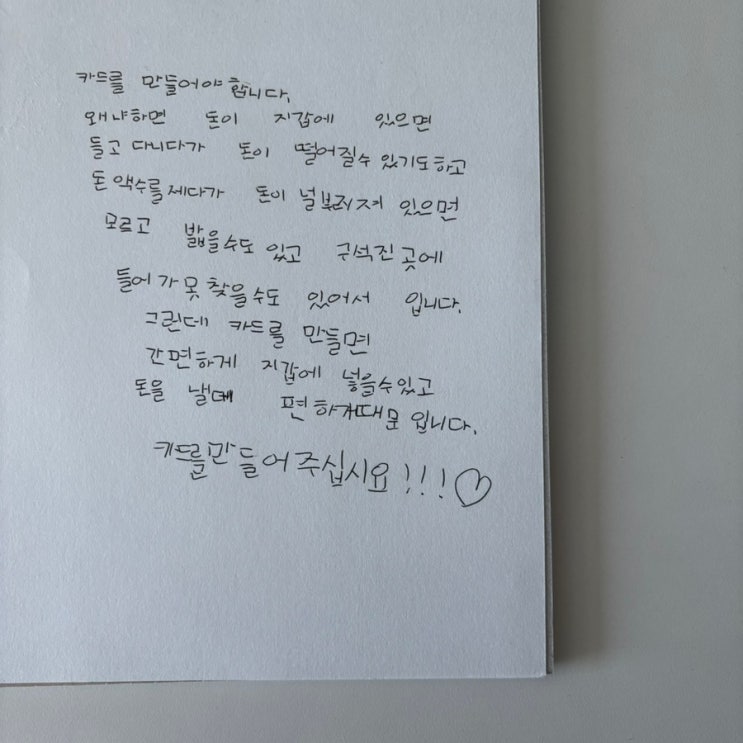 카드를 만들어야 합니다.
왜냐하면 돈이 지갑에 있으면
들고 다니다가 돈이 떨어질수 있기도하고
돈 액수를세다가 돈이 널부러져 있으면
모르고 밟을수도 있고 구석진 곳에
들어가 못 찾을수도 있어서 입니다.
그런데 카드를 만들면
간편하게 지갑에 넣을수있고
돈을 낼때 편하기때문입니다.
카드를만들어주십시요!!!♡